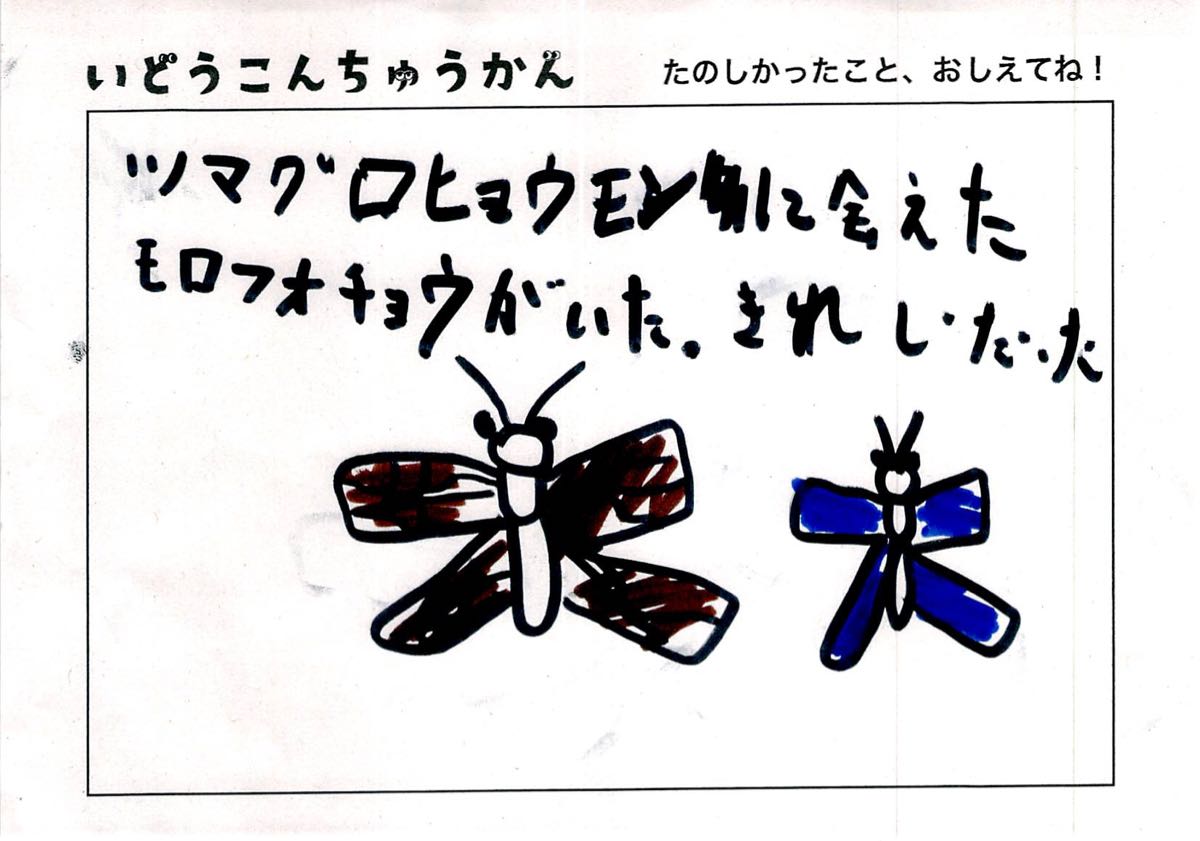 いどうこんちゅうかん
たのしかったこと、おしえてね！
ツマグロヒョウモンに会えた
モロフオチョウがいた。きれしだった